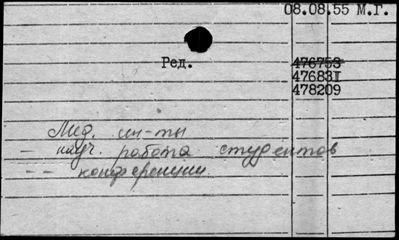 08.08.55 М.Г.
Ред. 476753
476831
478209
Мед. ин-ты
- науч. работа студентов
- - конференции